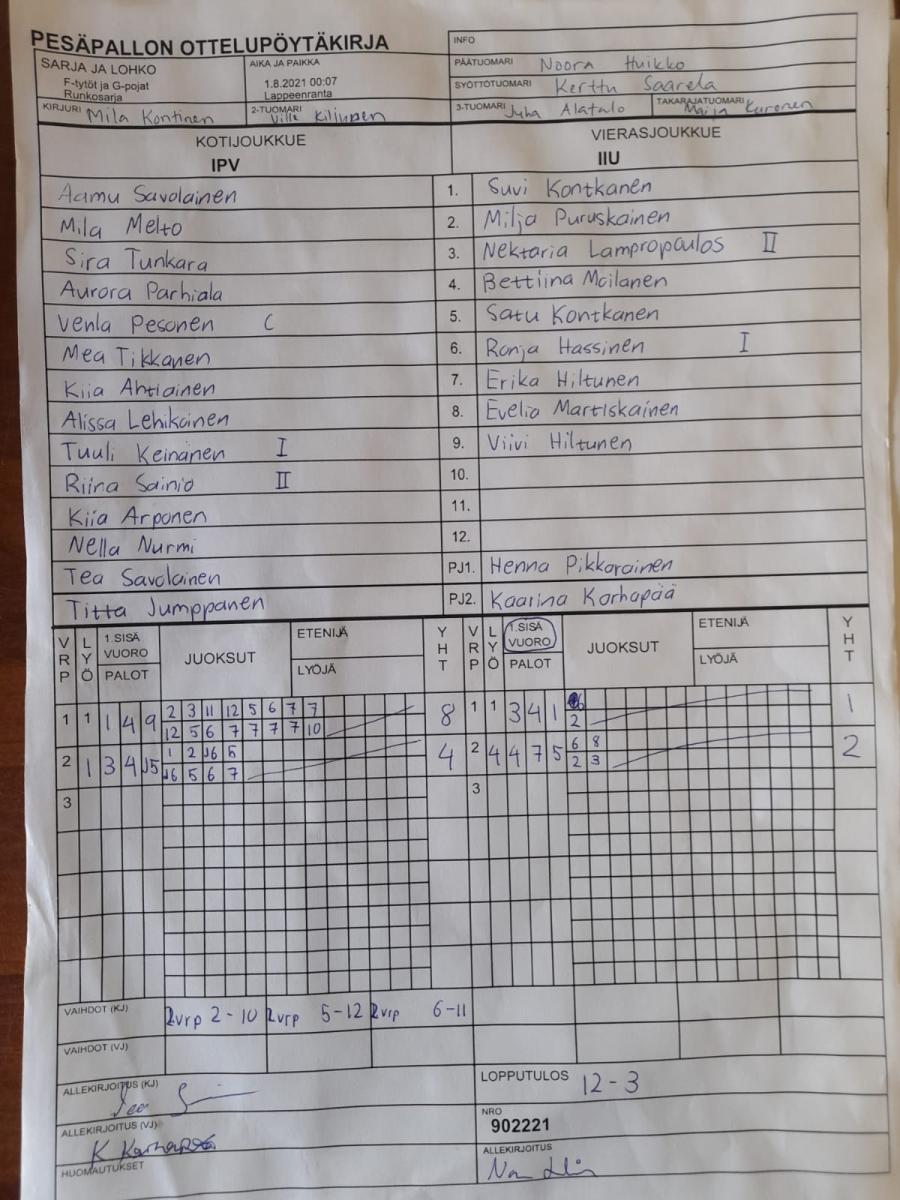 PESÄPALLON OTTELUPÖYTÄKIRJA
INFO
SARJA JA LOHKO
F-tytöt ja G-pojat
Runkosarja
AIKA JA PAIKKA
1.8.2021 00:07
Lappeenranta
PÄÄTUOMARI Noora Huikko
SYÖTTÖTUOMARI Kerttu Saarela
KIRJURI Mila Kontinen
2-TUOMARI Ville
3-TUOMARI Juha Alatalo
TAKARAJATUOMARI Maija Kuronen
KOTIJOUKKUE
IPV
VIERASJOUKKUE
IIU
Aamu Savolainen 1. Suvi Kontkanen
Mila Melto 2. Milja Puruskainen
Sira Tunkara 3. Nektaria Lampropoulos II
Aurora Parhiala 4. Bettiina Moilanen
Venla Pesonen C 5. Satu Kontkanen
Mea Tikkanen 6. Ronja Hassinen I
Kiia Ahtiainen 7. Erika Hiltunen
Alissa Lehikoinen 8. Evelia Martiskainen
Tuuli Keinänen I 9. Viivi Hiltunen
Riina Sainio II 10.
Kiia Arponen 11.
Nella Nurmi 12.
Tea Savolainen PJ1. Henna Pikkarainen
Titta Jumppanen PJ2. Kaarina Karhapää
VRP LYÖ 1.SISÄ VUORO PALOT JUOKSUT ETENIJÄ LYÖJÄ YHT VRP LYÖ 1.SISÄ VUORO PALOT JUOKSUT ETENIJÄ LYÖJÄ YHT
1 1 1 4 9 2 3 11 12 5 6 7 7 8 1 1 3 4 1 1
12 5 6 7 7 7 7 10 2
2 1 3 4 J5 1 2 J6 5 4 2 4 4 7 5 6 8 2
J6 5 6 7 2 3
3 3
VAIHDOT (KJ) 2vrp 2-10 2vrp 5-12 2vrp 6-11
VAIHDOT (VJ)
ALLEKIRJOITUS (KJ)
LOPPUTULOS 12-3
ALLEKIRJOITUS (VJ) K Karhapää
NRO
902221
HUOMAUTUKSET
ALLEKIRJOITUS